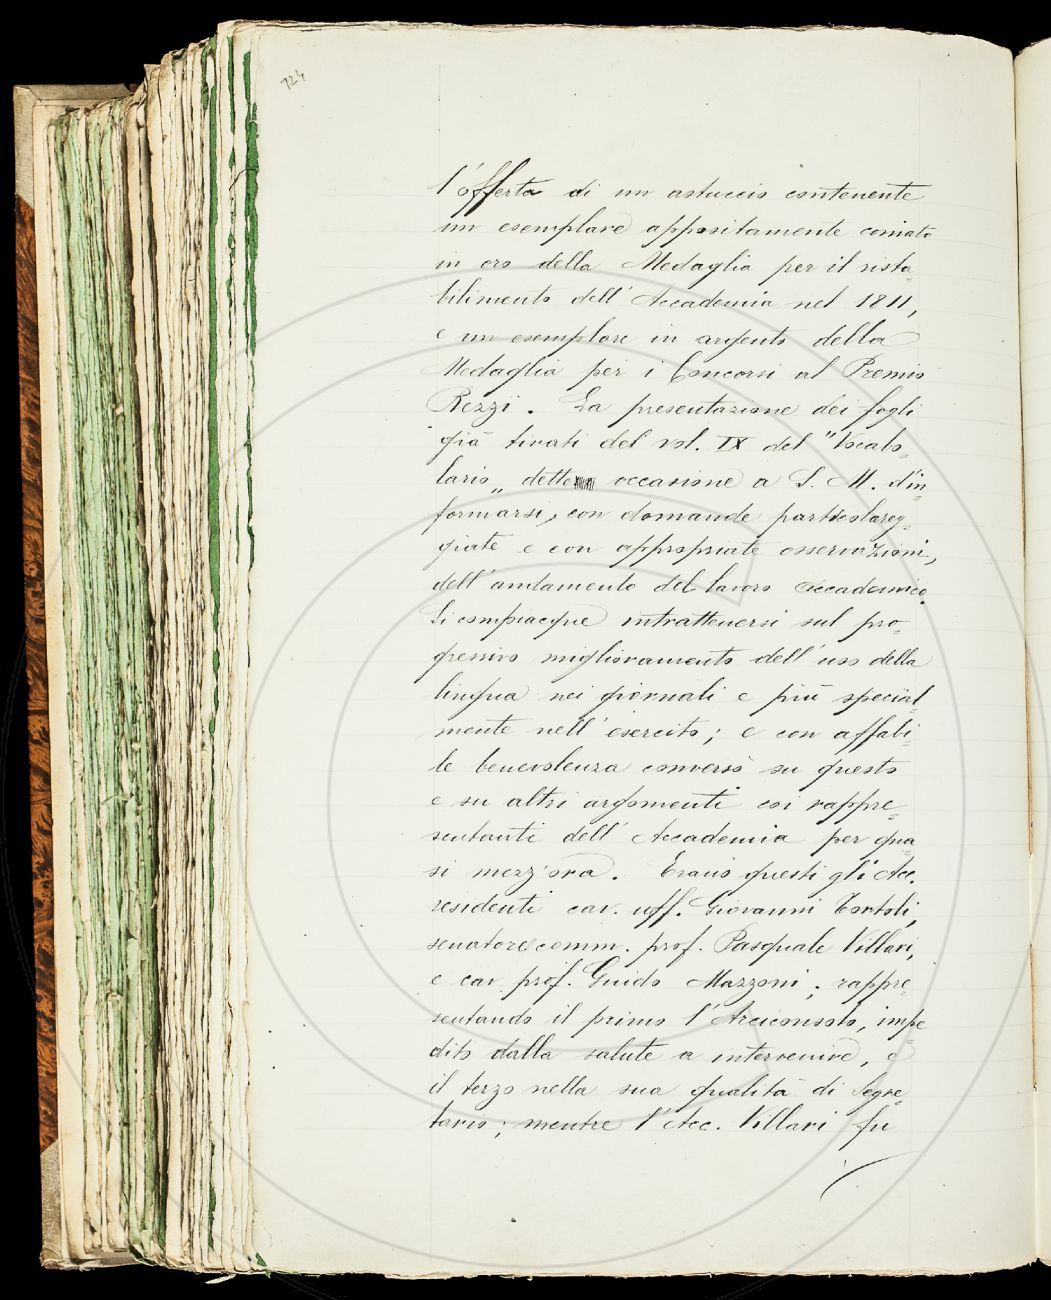 724
l'offerta di un astuccio contenente
un esemplare appositamente coniato
in oro della Medaglia per il rista-
bilimento dell'Accademia nel 1811,
e un esemplare in argento della
Medaglia per i Concorsi al Premio
Rezzi. La presentazione dei fogli
già tirati del vol. IX del "Vocabo-
lario„ dette occasione a S. M. d'in-
formarsi, con domande particolareg-
giate e con appropriate osservazioni,
dell'andamento del lavoro accademico.
Si compiacque intrattenersi sul pro-
gressivo miglioramento dell'uso della
lingua nei giornali e più special-
mente nell'esercito; e con affabi-
le benevolenza conversò su questo
e su altri argomenti coi rappre-
sentanti dell'Accademia per qua-
si mezz'ora. Erano questi gli Acc.
residenti cav. uff. Giovanni Tortoli,
senatore comm. prof. Pasquale Villari,
e cav. prof. Guido Mazzoni; rappre-
sentando il primo l'Arciconsolo, impe-
dito dalla salute a intervenire, e
il terzo nella sua qualità di Segre-
tario; mentre l'Acc. Villari fu